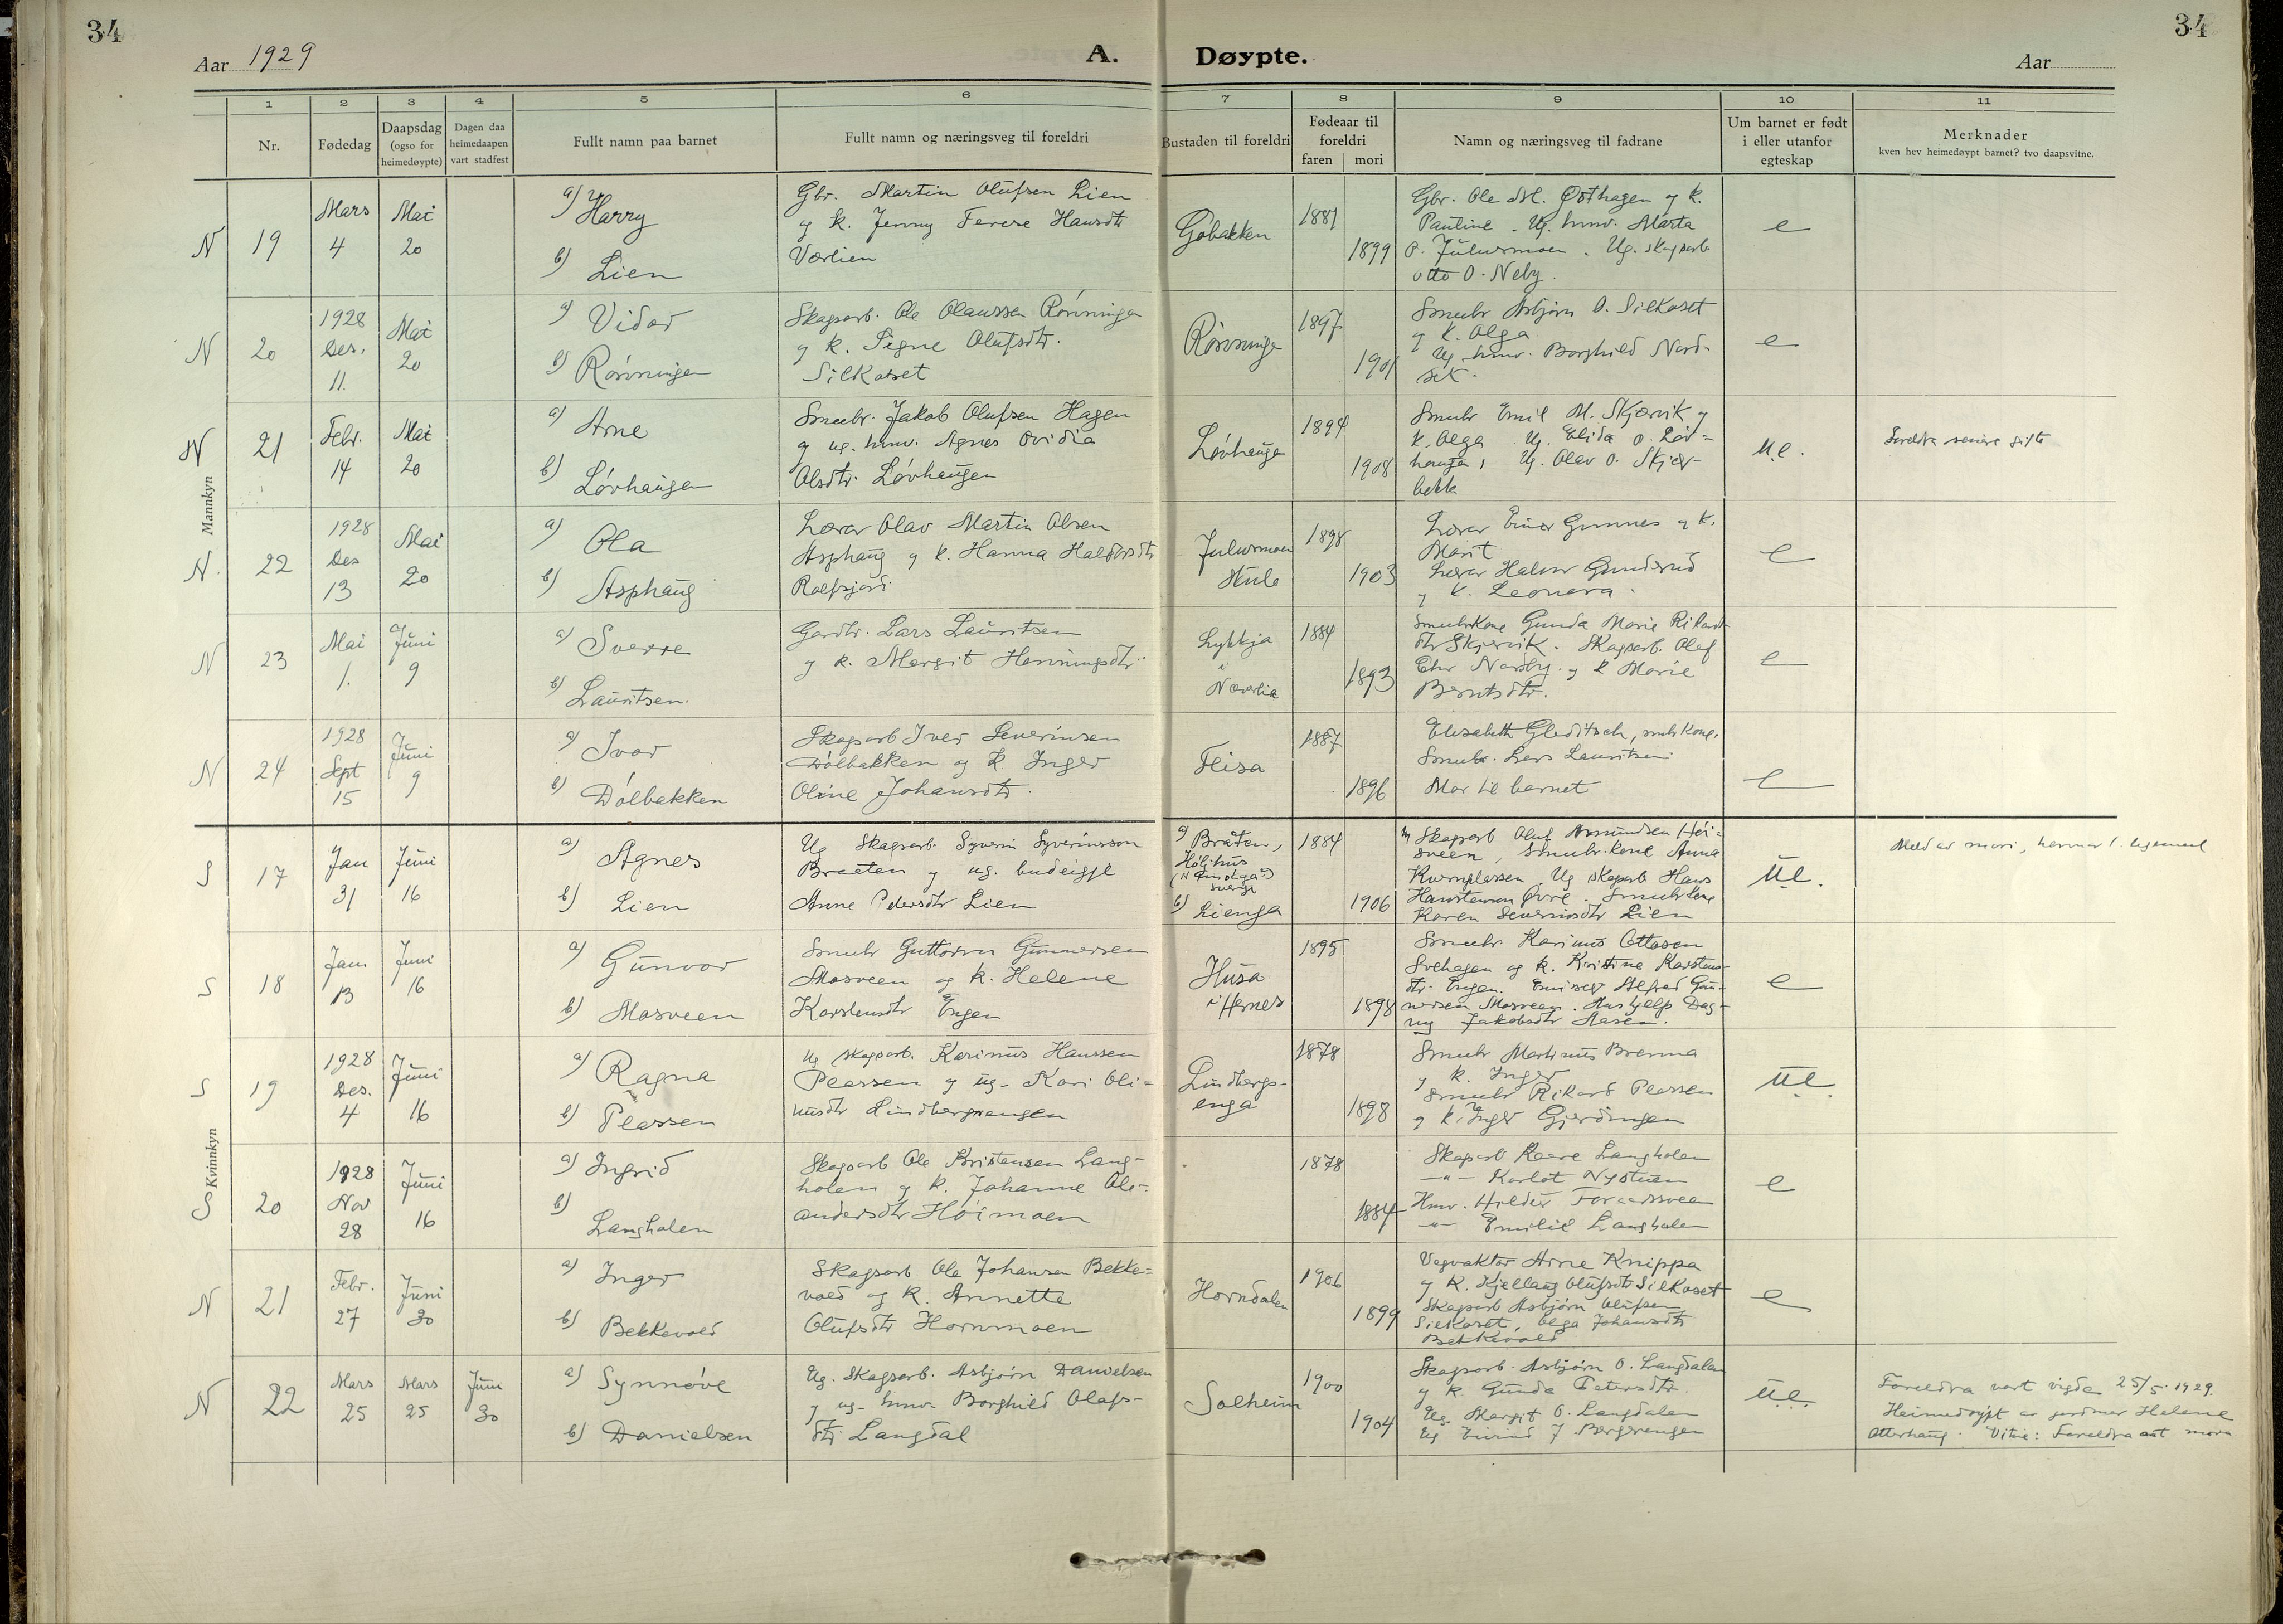 34
34
Aar 1929
A. Døypte.
Aar
1 2 3 4 5 6 7 8 9 10 11
Nr.
Fødedag
Daapsdag
(ogso for
heimedøypte)
Dagen daa
heimedaapen
vart stadfest
Fullt namn paa barnet
Fullt namn og næringsveg til foreldri
Bustaden til foreldri
Fødeaar til
foreldri
faren mori
Namn og næringsveg til fadrane
Um barnet er født
i eller utanfor
egteskap
Merknader
kven hev heimedøypt barnet? tvo daapsvitne.
Mannkyn
N 19
Mars
4
Mai
20
a) Harry
b) Lien
Gbr. Martin Olufsen Lien
og k. Jenny Terese Hansdtr
Værlien
Gobakken
1881
1899
Gbr. Ole M. Østhagen og k.
Pauline. Ug. hmv. Marta
O. Julusmoen. Ug. skogsarb
Otto O. Neby.
e
N 20
1928
Des.
11.
Mai
20
a) Vidar
b) Rønningen
Skogsarb. Ole Olaussen Rønningen
og k. Signe Olufsdtr.
Silkoset
Rønningen
1897
1901
Smubr Asbjørn O. Silkoset
og k. Olga
Ug. hmv. Borghild Nord-
set.
e
N 21
Febr.
14
Mai
20
a) Arne
b) Løvhaugen
Smubr. Jakob Olufsen Hagen
og ug. hmv. Agnes Ovidia
Olsdtr. Løvhaugen
Løvhaugen
1894
1908
Smubr Emil M. Skjærvik og
k. Olga. Ug. Elida O. Løv-
haugen, Ug. Olav O. Skjær-
bekk
u.e.
Foreldra seinere gifte
N. 22
1928
Des
13
Mai
20
a) Ola
b) Asphaug
Lærar Olav Martin Olsen
Asphaug og k. Hanna Haldorsdtr
Rolfsjord
Julusmoen
Skule
1898
1903
Lærar Einar Gunnes og k.
Marit
Lærar Halvor Gunderud
og k. Leonora.
e
N 23
Mai
1.
Juni
9
a) Sverre
b) Lauritsen.
Gardbr. Lars Lauritsen
og k. Margit Henningsdtr.
Lykkja
i
Nøverlia
1884
1893
Smubrkone Gunda Marie Rikard-
dtr Skjervik. Skogsarb. Olaf
Ehr Nordby. og k Marie
Berntsdtr.
e
N 24
1928
Sept
15
Juni
9
a) Ivar
b) Dølbakken
Skogsarb Iver Severinsen
Dølbakken og k Inger
Oline Johansdtr.
Flisa
1887
1896
Elisabeth Gleditsch, smbr kone.
Smubr. Lars Lauritsen
Mor til barnet
e
Kvinnkyn
S 17
Jan
31
Juni
16
a) Agnes
b) Lien
Ug Skogsarb. Syverin Syverinsson
Braaten og ug. budeigje
Anne Pedersdtr Lien
a) Bråten,
Höljhus
Sverge
b) Lienga
1884
1906
Skogsarb Oluf Amundsen Høi-
sveen, Smubr. kone Anna
Kvernplassen. Ug skogsarb Hans
Hanstensen Øvre. Smubrkone
Karen Severinsdtr Lien
u.e.
Meld av mori,
S 18
Jan
13
Juni
16
a) Gunvor
b) Mosveen
Smubr Guttorm Gunnersen
Mosveen og k. Helene
Karstensdtr Engen
Husa
i Hernes
1895
1898
Smubr Karinus Ottosen
Svehagen og k. Kristine Karstens-
dtr. Engen. Emissær Alfred Gun-
nersen Mosveen. Hushjelp Dag-
ny Jakobsdtr Aasen.
e
S 19
1928
Des.
4
Juni
16
a) Ragna
b) Plassen
Ug skogsarb. Karinus Hanssen
Plassen og ug- Kari Oli-
nusdtr Lindbergsengen
Lindbergs-
enga
1878
1898
Smubr Martinus Brenna
og k. Inger
Smubr Rikard Plassen
og k. Inger Gjerdingen
u.e.
S 20
1928
Nov
28
Juni
16
a) Ingrid
b)
Langholen
Skogsarb Ole Kristensen Lang-
holen og k. Johanne Ale-
andersdtr Høimoen
1878
1884
Skogsarb Kaare Langholen
-"- Karlot Nystuen
Hmv. Hilder Toraassveen
-"- Emilie Langholen
e
N 21
Febr.
27
Juni
30
a) Inger
b) Bekkevold
Skogsarb Ole Johansen Bekke-
vold og k. Annette
Olufsdtr Hornmoen
Horndalen
1906
1899
Vegvaktar Arne Knippa
og k. Kjellaug Olufsdtr Silkoset
Skogsarb Asbjørn Olufsen
Silkoset, Olga Johansdtr
Bekkevold
e
N 22
Mars
25
Mars
25
Juni
30
a) Synnøve
b) Danielsen
Ug. Skogsarb. Asbjørn Danielsen
og ug- hmv. Borghild Olafs-
dtr Langdal
Solheim
1900
1904
Skogsarb. Asbjørn O. Langdalen
og k. Gunda Petersdtr.
Ug. Margit O. Langdalen
Ug Eivind J. Bergsrengen
u.e.
Foreldra vart vigde 25/5 1929.
Heimedøypt av jordmor Helene
Otterhaug. Vitne: Foreldra aat mora